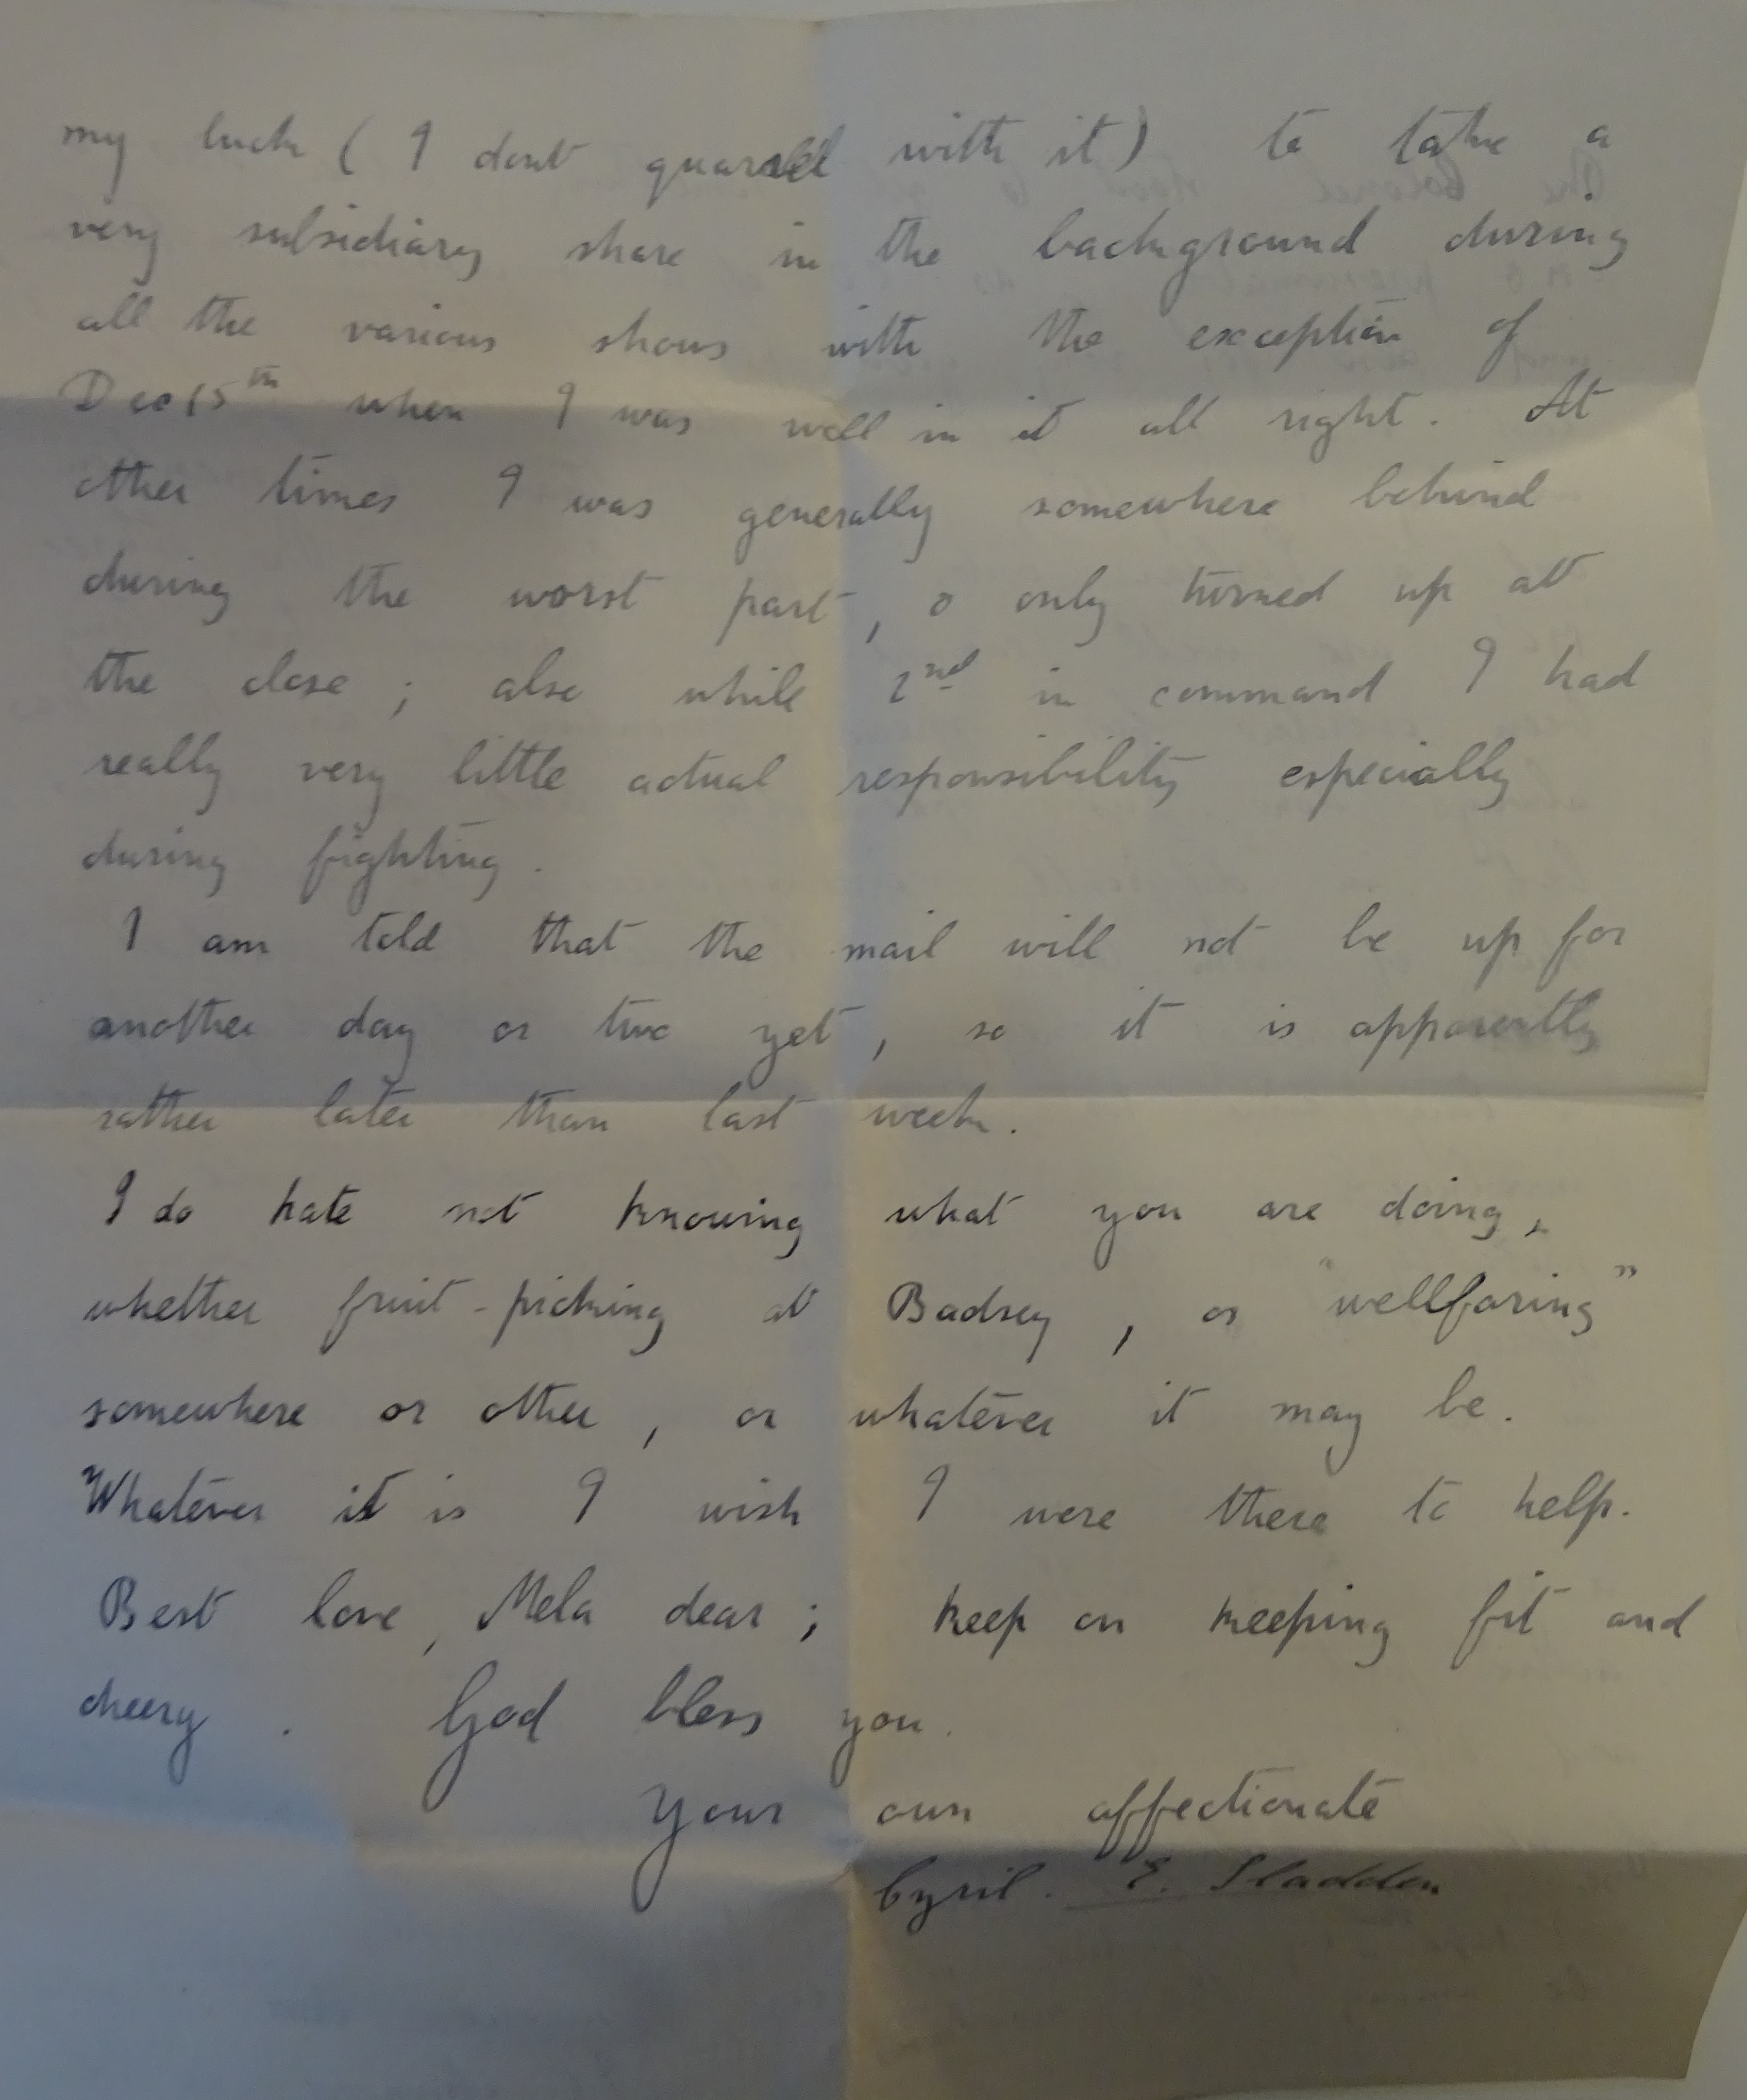 my luck (I dont quarrel with it) to take a
very subsidiary share in the background during
all the various shows with the exception of
Dec 15th when I was well in it all right. At
other times I was generally somewhere behind
during the worst part, & only turned up at
the close; also while 2nd in command I had
really very little actual responsibility especially
during fighting.
I am told that the mail will not be up for
another day or two yet, so it is apparently
rather later than last week.
I do hate not knowing what you are doing,
whether fruit-picking at Badsey, or "wellfaring"
somewhere or other, or whatever it may be.
Whatever it is I wish I were there to help.
Best love, Mela dear; keep on keeping fit and
cheery. God bless you.
Your own affectionate
Cyril. E. Sladden